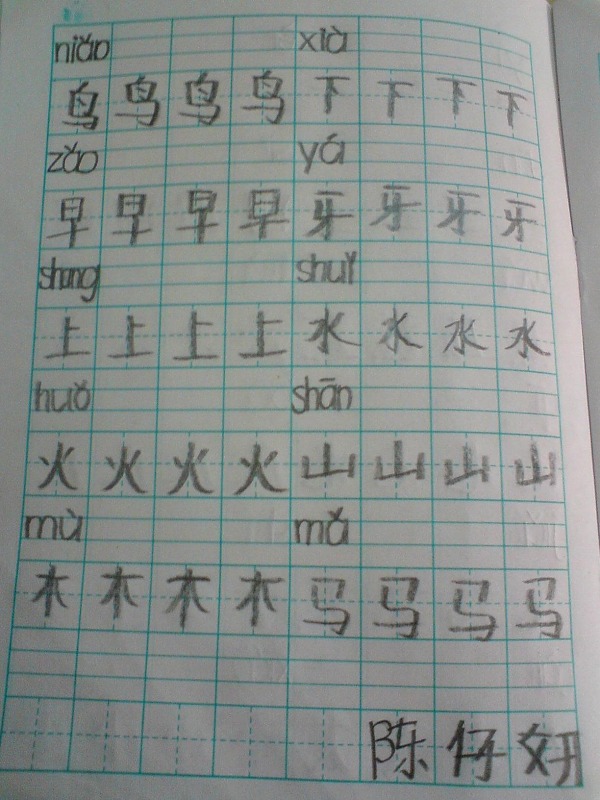 niǎo xià
鸟 鸟 鸟 鸟 下 下 下 下
zǎo yá
早 早 早 早 牙 牙 牙 牙
shang shuǐ
上 上 上 上 水 水 水 水
huǒ shān
火 火 火 火 山 山 山 山
mù mǎ
木 木 木 木 马 马 马 马
陈 仔 妍